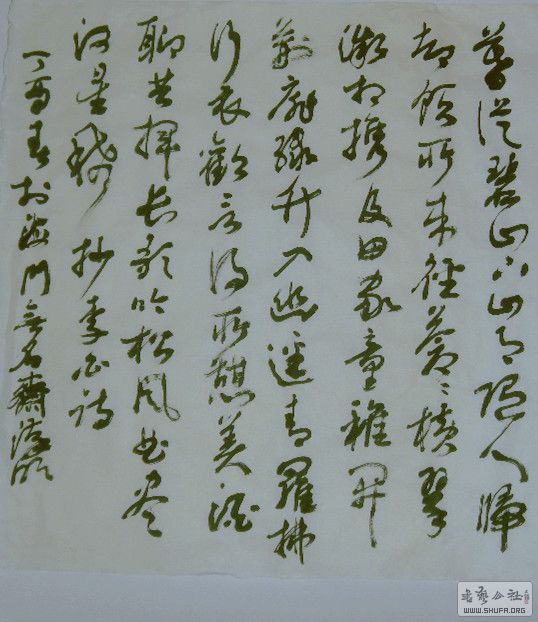 暮從碧山下山月隨人歸
却顧所來徑蒼々橫翠
微相攜及田家童稚開
荆扉綠竹入幽逕青羅拂
行衣歡言得所憩美酒
聊共揮長歌吟松風曲盡
河星稀 抄李白詩
丁酉春於海門無名齋
书艺公社
WWW.SHUFA.ORG